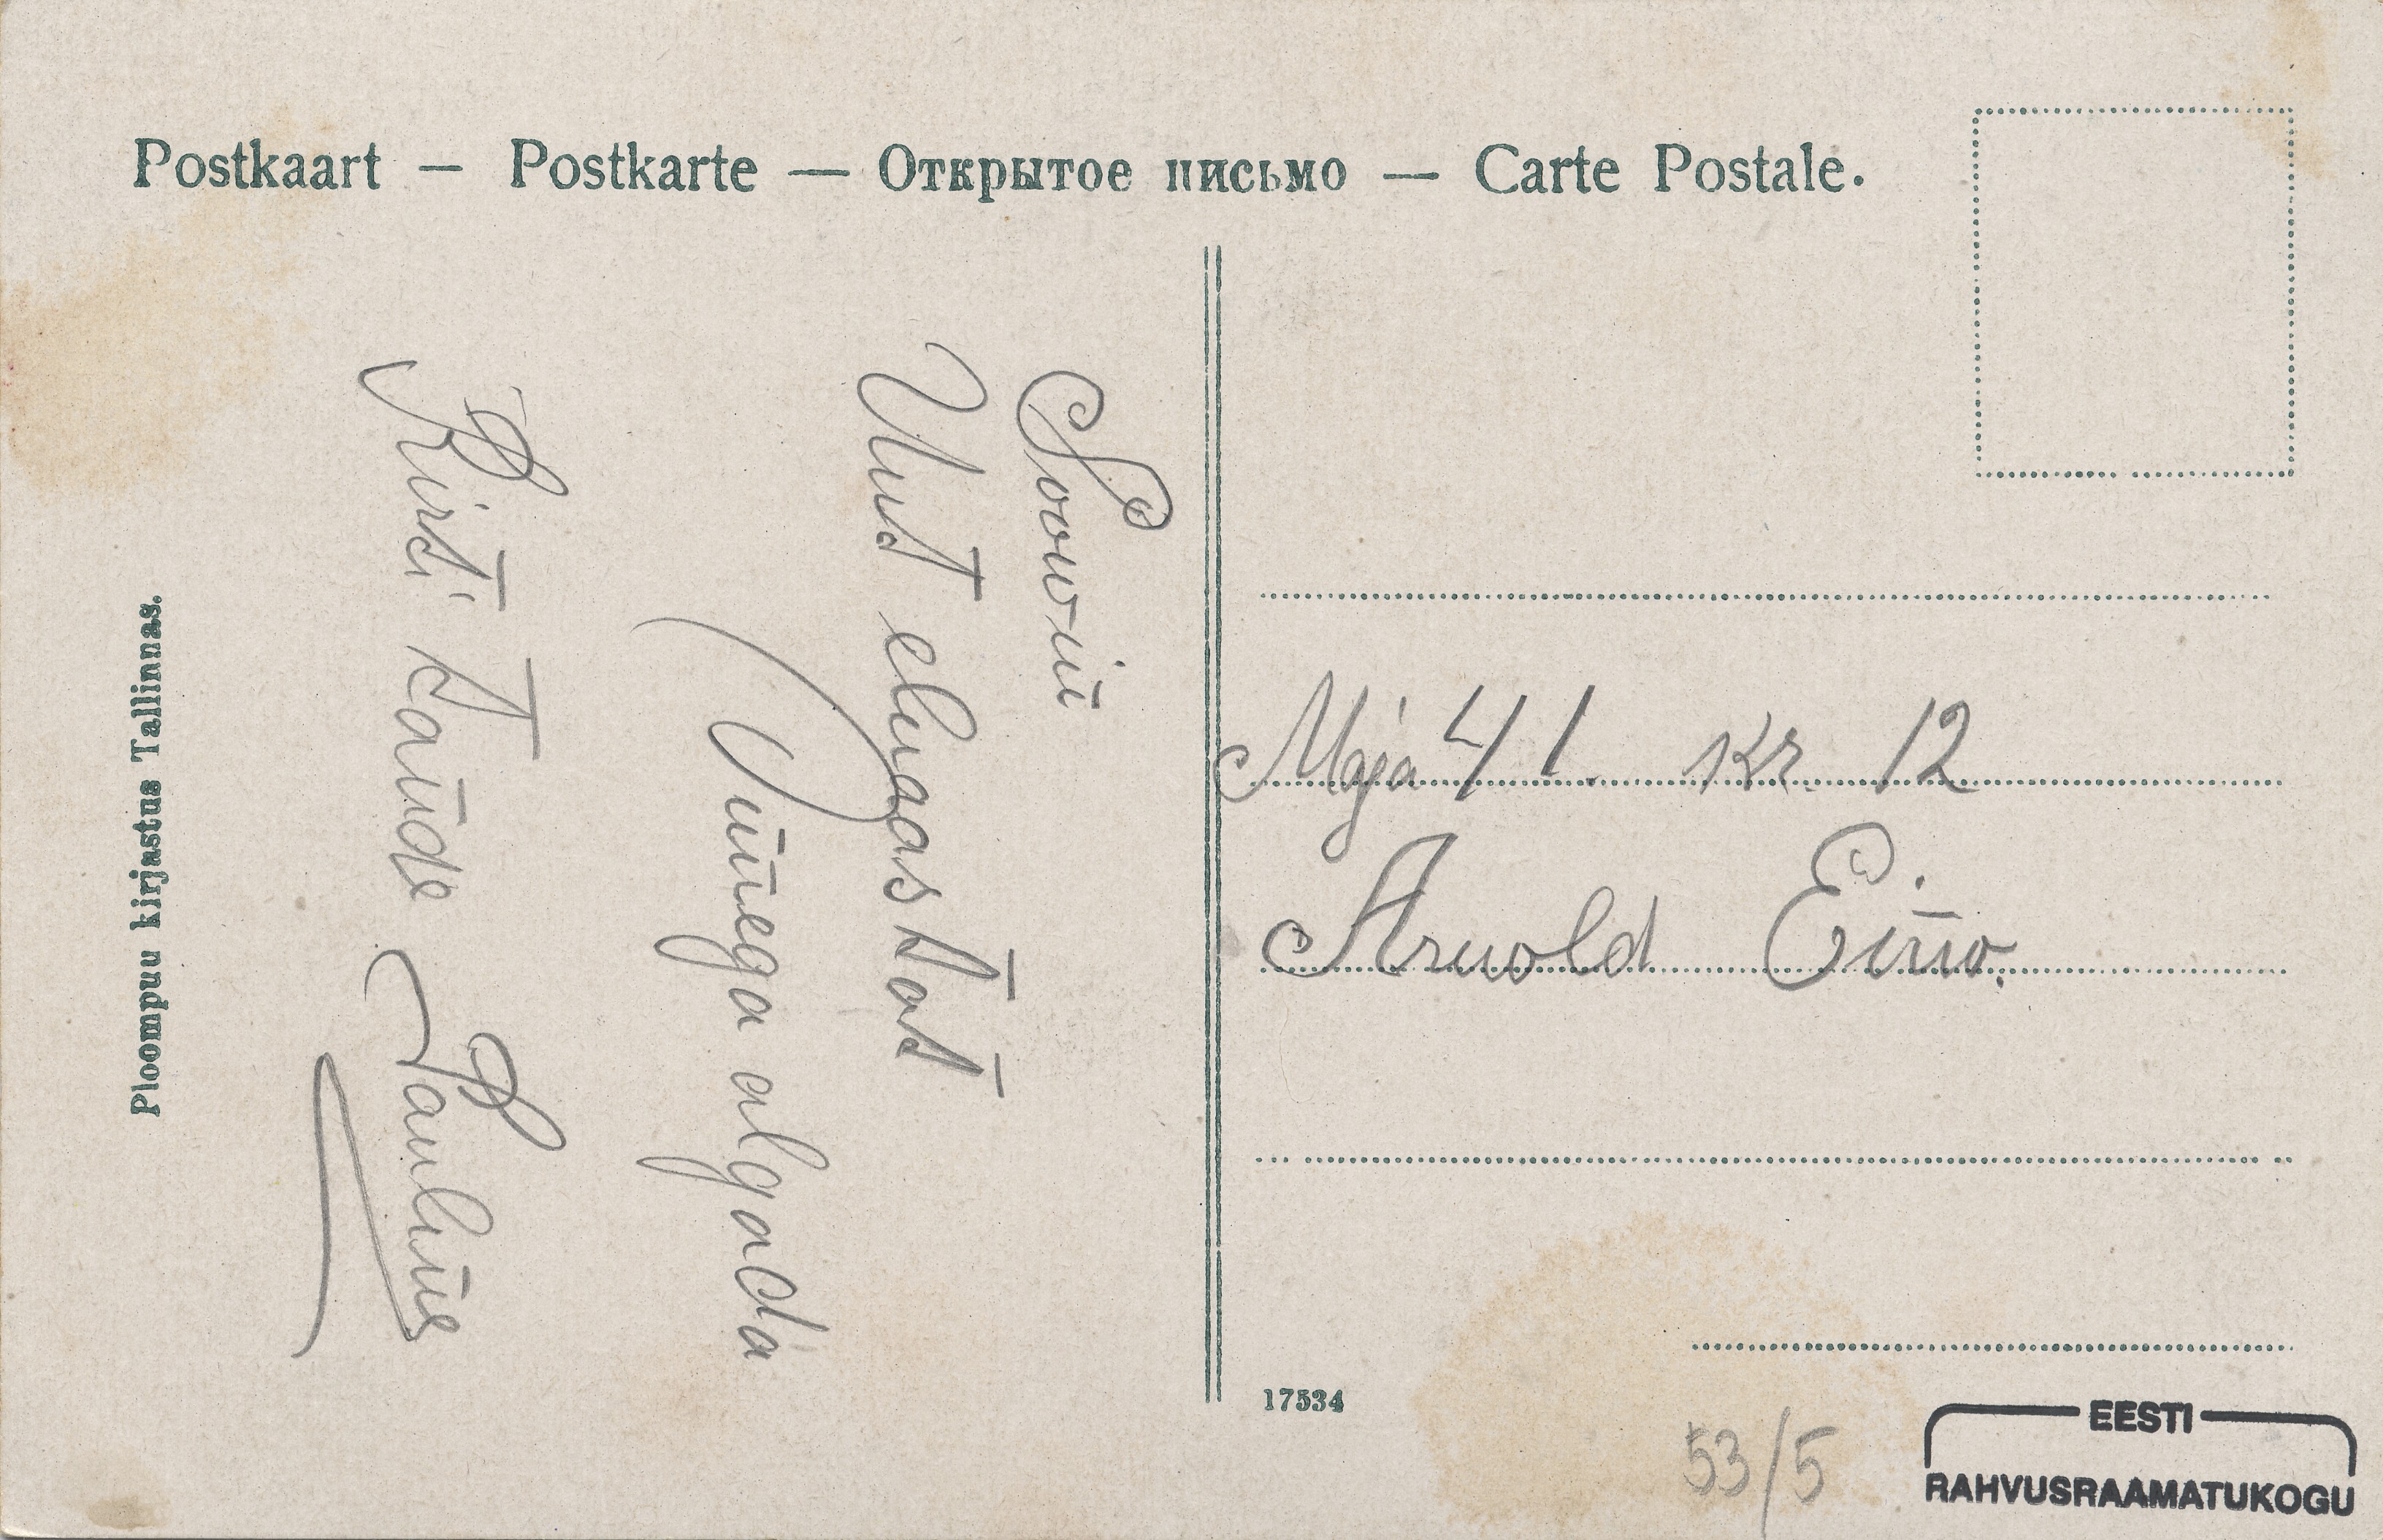 Postkaart — Postkarte — Открытое письмо — Carte Postale.
Soowin
Uut eluaastat
Õnnega algada
Kirst taude Pauline
Ploompuu kirjastus Tallinnas.
Maja 41. Kr. 12
Arnold Eino.
17534
53/5
EESTI
RAHVUSRAAMATUKOGU